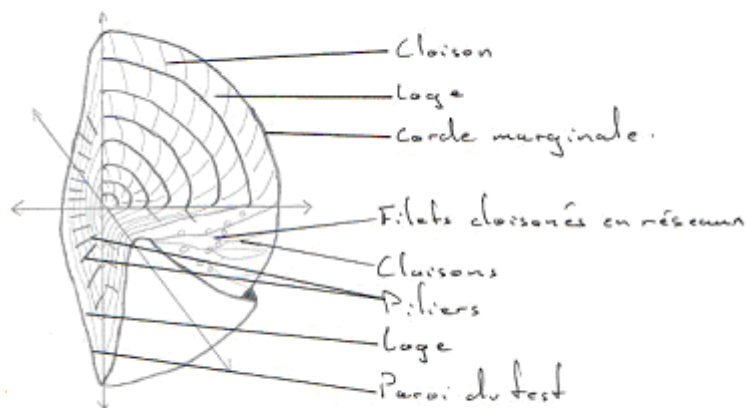 Cloison
Loge
Corde marginale.
Filets cloisonés en réseaux
Cloisons
Piliers
Loge
Paroi du test